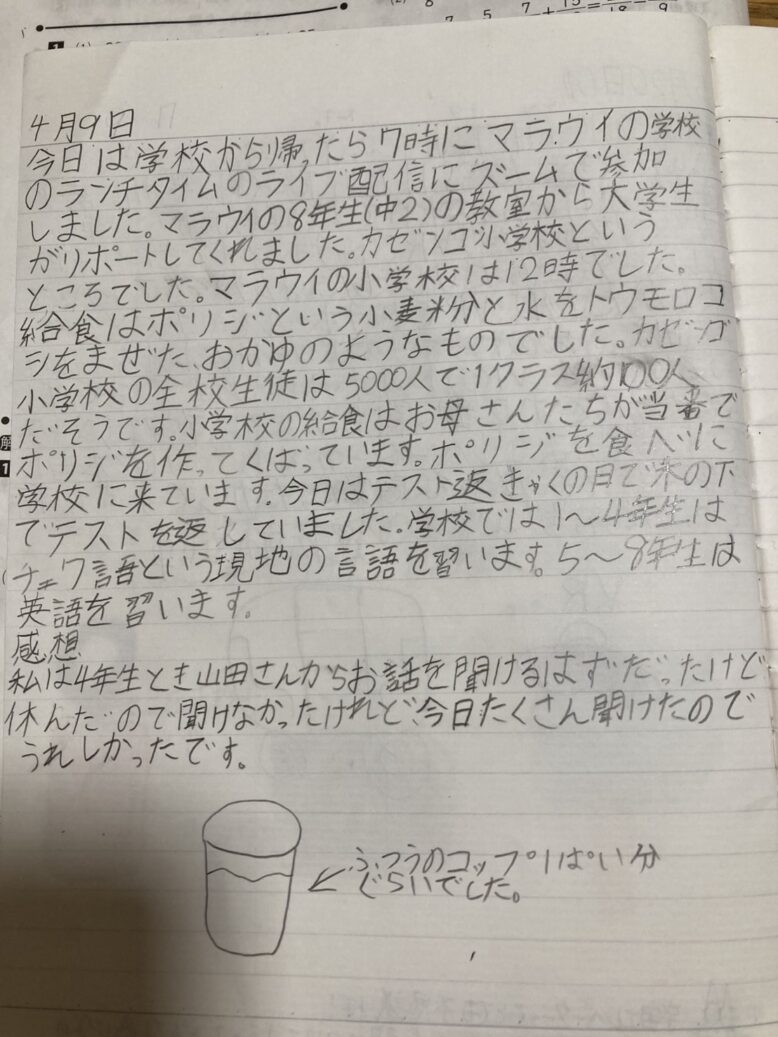 4月9日
今日は学校から帰ったら7時にマラウイの学校
のランチタイムのライブ配信にズームで参加
しました。マラウイの8年生(中2)の教室から大学生
がリポートしてくれました。カゼンゴ小学校という
ところでした。マラウイの小学校は12時でした。
給食はポリジという小麦粉分と水をトウモロコ
シをまぜた、おかゆのようなものでした。カゼンゴ
小学校の全校生徒は5000人で1クラス約100人
だそうです。小学校の給食はお母さんたちが当番で
ポリジを作ってくばっています。ポリジを食べに
学校に来ています。今日はテスト返きゃくの日で木の下
でテストを返していました。学校では1〜4年生は
チェワ語という現地の言語を習います。5〜8年生は
英語を習います。
感想
私は4年生とき山田さんからお話を聞けるはずだったけど
休んだので聞けなかったけれど、今日たくさん聞けたので
うれしかったです。
ふつうのコップ1ぱい分
ぐらいでした。